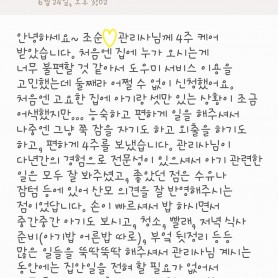 6월 24일, 오후 3:02
안녕하세요~ 조순💛관리사님께 4주 케어
받았습니다. 처음엔 집에 누가 오시는게
너무 불편할 것 같아서 도우미 서비스 이용을
고민했는데 둘째라 어쩔 수 없이 신청했어요.
처음엔 고요한 집에 아기랑 셋만 있는 상황이 조금
어색했지만... 능숙하고 편하게 일을 해주셔서
나중엔 그냥 쭉 잠을 자기도 하고 외출을 하기도
하고, 편하게 4주를 보냈습니다. 관리사님이
다년간의 경험으로 전문성이 있으셔서 아기 관련한
일은 모두 잘 봐주셨고, 좋았던 점은 수유나
잠텀 등에 있어 산모 의견을 잘 반영해주시는
점이었답니다. 손이 빠르셔서 밥 하시면서
중간중간 아기도 보시고, 청소, 빨래, 저녁 식사
준비(아기밥 어른밥 따로), 부엌 뒷정리 등등
많은 일들을 뚝딱뚝딱 해주셔서 관리사님 계시는
동안에는 집안일을 전혀 할 필요가 없어서